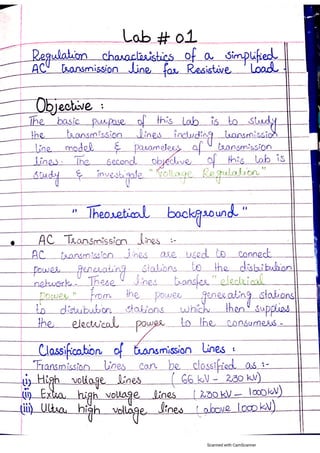 Lab # 01
Regulation characteristics of a simplified
AC transmission line for Resistive Load.
Objective :
The basic purpose of this lab is to study
the transmission lines including transmission
line model & parameters of transmission
lines. The second objective of this lab is
study & investigate "Voltage Regulation"
" Theoretical background "
• AC Transmission lines :-
AC transmission lines are used to connect
power generating stations to the distribution
network. These lines transfer "electrical
power" from the power generating stations
to distribution stations which then supplies
the electrical power to the consumers.
Classification of transmission lines :
Transmission lines can be classified as :-
(i) High voltage lines ( 66 kV - 230 kV)
(ii) Extra high voltage lines (230 kV - 1000 kV)
(iii) Ultra high voltage lines (above 1000 kV)
Scanned with CamScanner